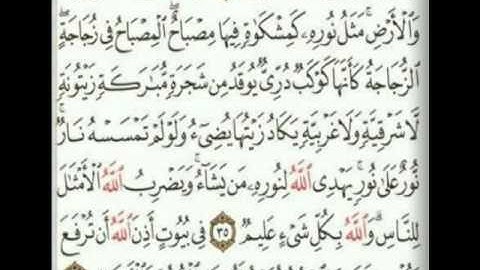 وَٱلْأَرْضِ ۚ مَثَلُ نُورِهِۦ كَمِشْكَوٰةٍ فِيهَا مِصْبَاحٌ ۖ ٱلْمِصْبَاحُ فِى زُجَاجَةٍ ۖ
ٱلزُّجَاجَةُ كَأَنَّهَا كَوْكَبٌ دُرِّىٌّ يُوقَدُ مِن شَجَرَةٍ مُّبَـٰرَكَةٍ زَيْتُونَةٍ
لَّا شَرْقِيَّةٍ وَلَا غَرْبِيَّةٍ يَكَادُ زَيْتُهَا يُضِىٓءُ وَلَوْ لَمْ تَمْسَسْهُ نَارٌ ۚ
نُّورٌ عَلَىٰ نُورٍ ۗ يَهْدِى ٱللَّهُ لِنُورِهِۦ مَن يَشَآءُ ۚ وَيَضْرِبُ ٱللَّهُ ٱلْأَمْثَـٰلَ
لِلنَّاسِ ۗ وَٱللَّهُ بِكُلِّ شَىْءٍ عَلِيمٌ ٣٥ فِى بُيُوتٍ أَذِنَ ٱللَّهُ أَن تُرْفَعَ